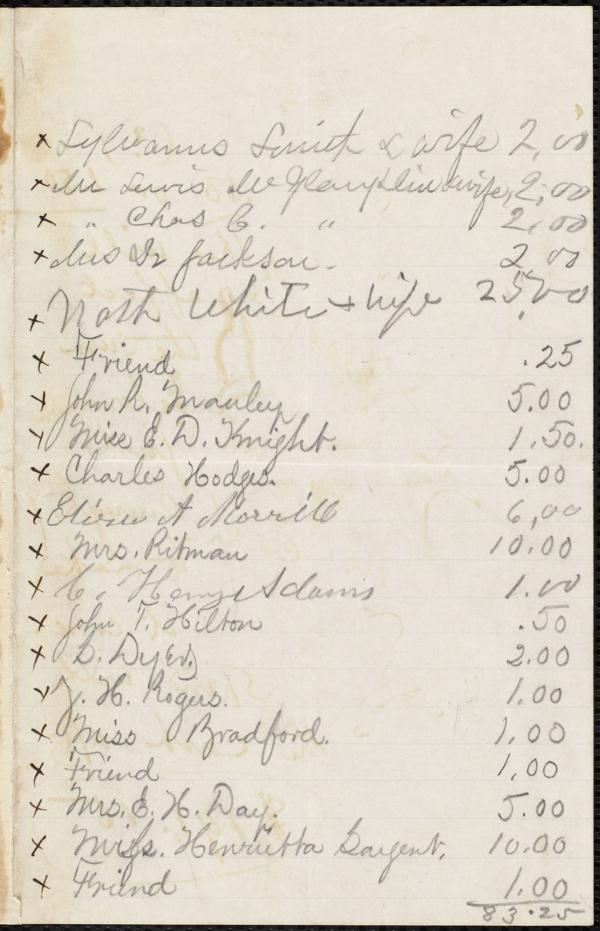 x Sylvanus Smith & wife 2,00
x Mr Lewis McGlauphlin wife, 2,00
x " Chas C. " 2,00
x Mrs Dr Jackson. 2 00
x Nath White + wife 25,00
x Friend .25
x John R. Manley 5.00
x Miss E. D. Knight. 1.50.
x Charles Hodges. 5.00
x Eliza A Morrill 6,00
x Mrs. Pitman 10.00
x C. Henry Adams 1.00
x John T. Hilton .50
x D. Dyer 2.00
x J. H. Rogers. 1.00
x Miss Bradford. 1,00
x Friend 1,00
x Mrs. E. H. Day. 5.00
x Miss. Henrietta Sargent, 10.00
x Friend 1.00
83.25